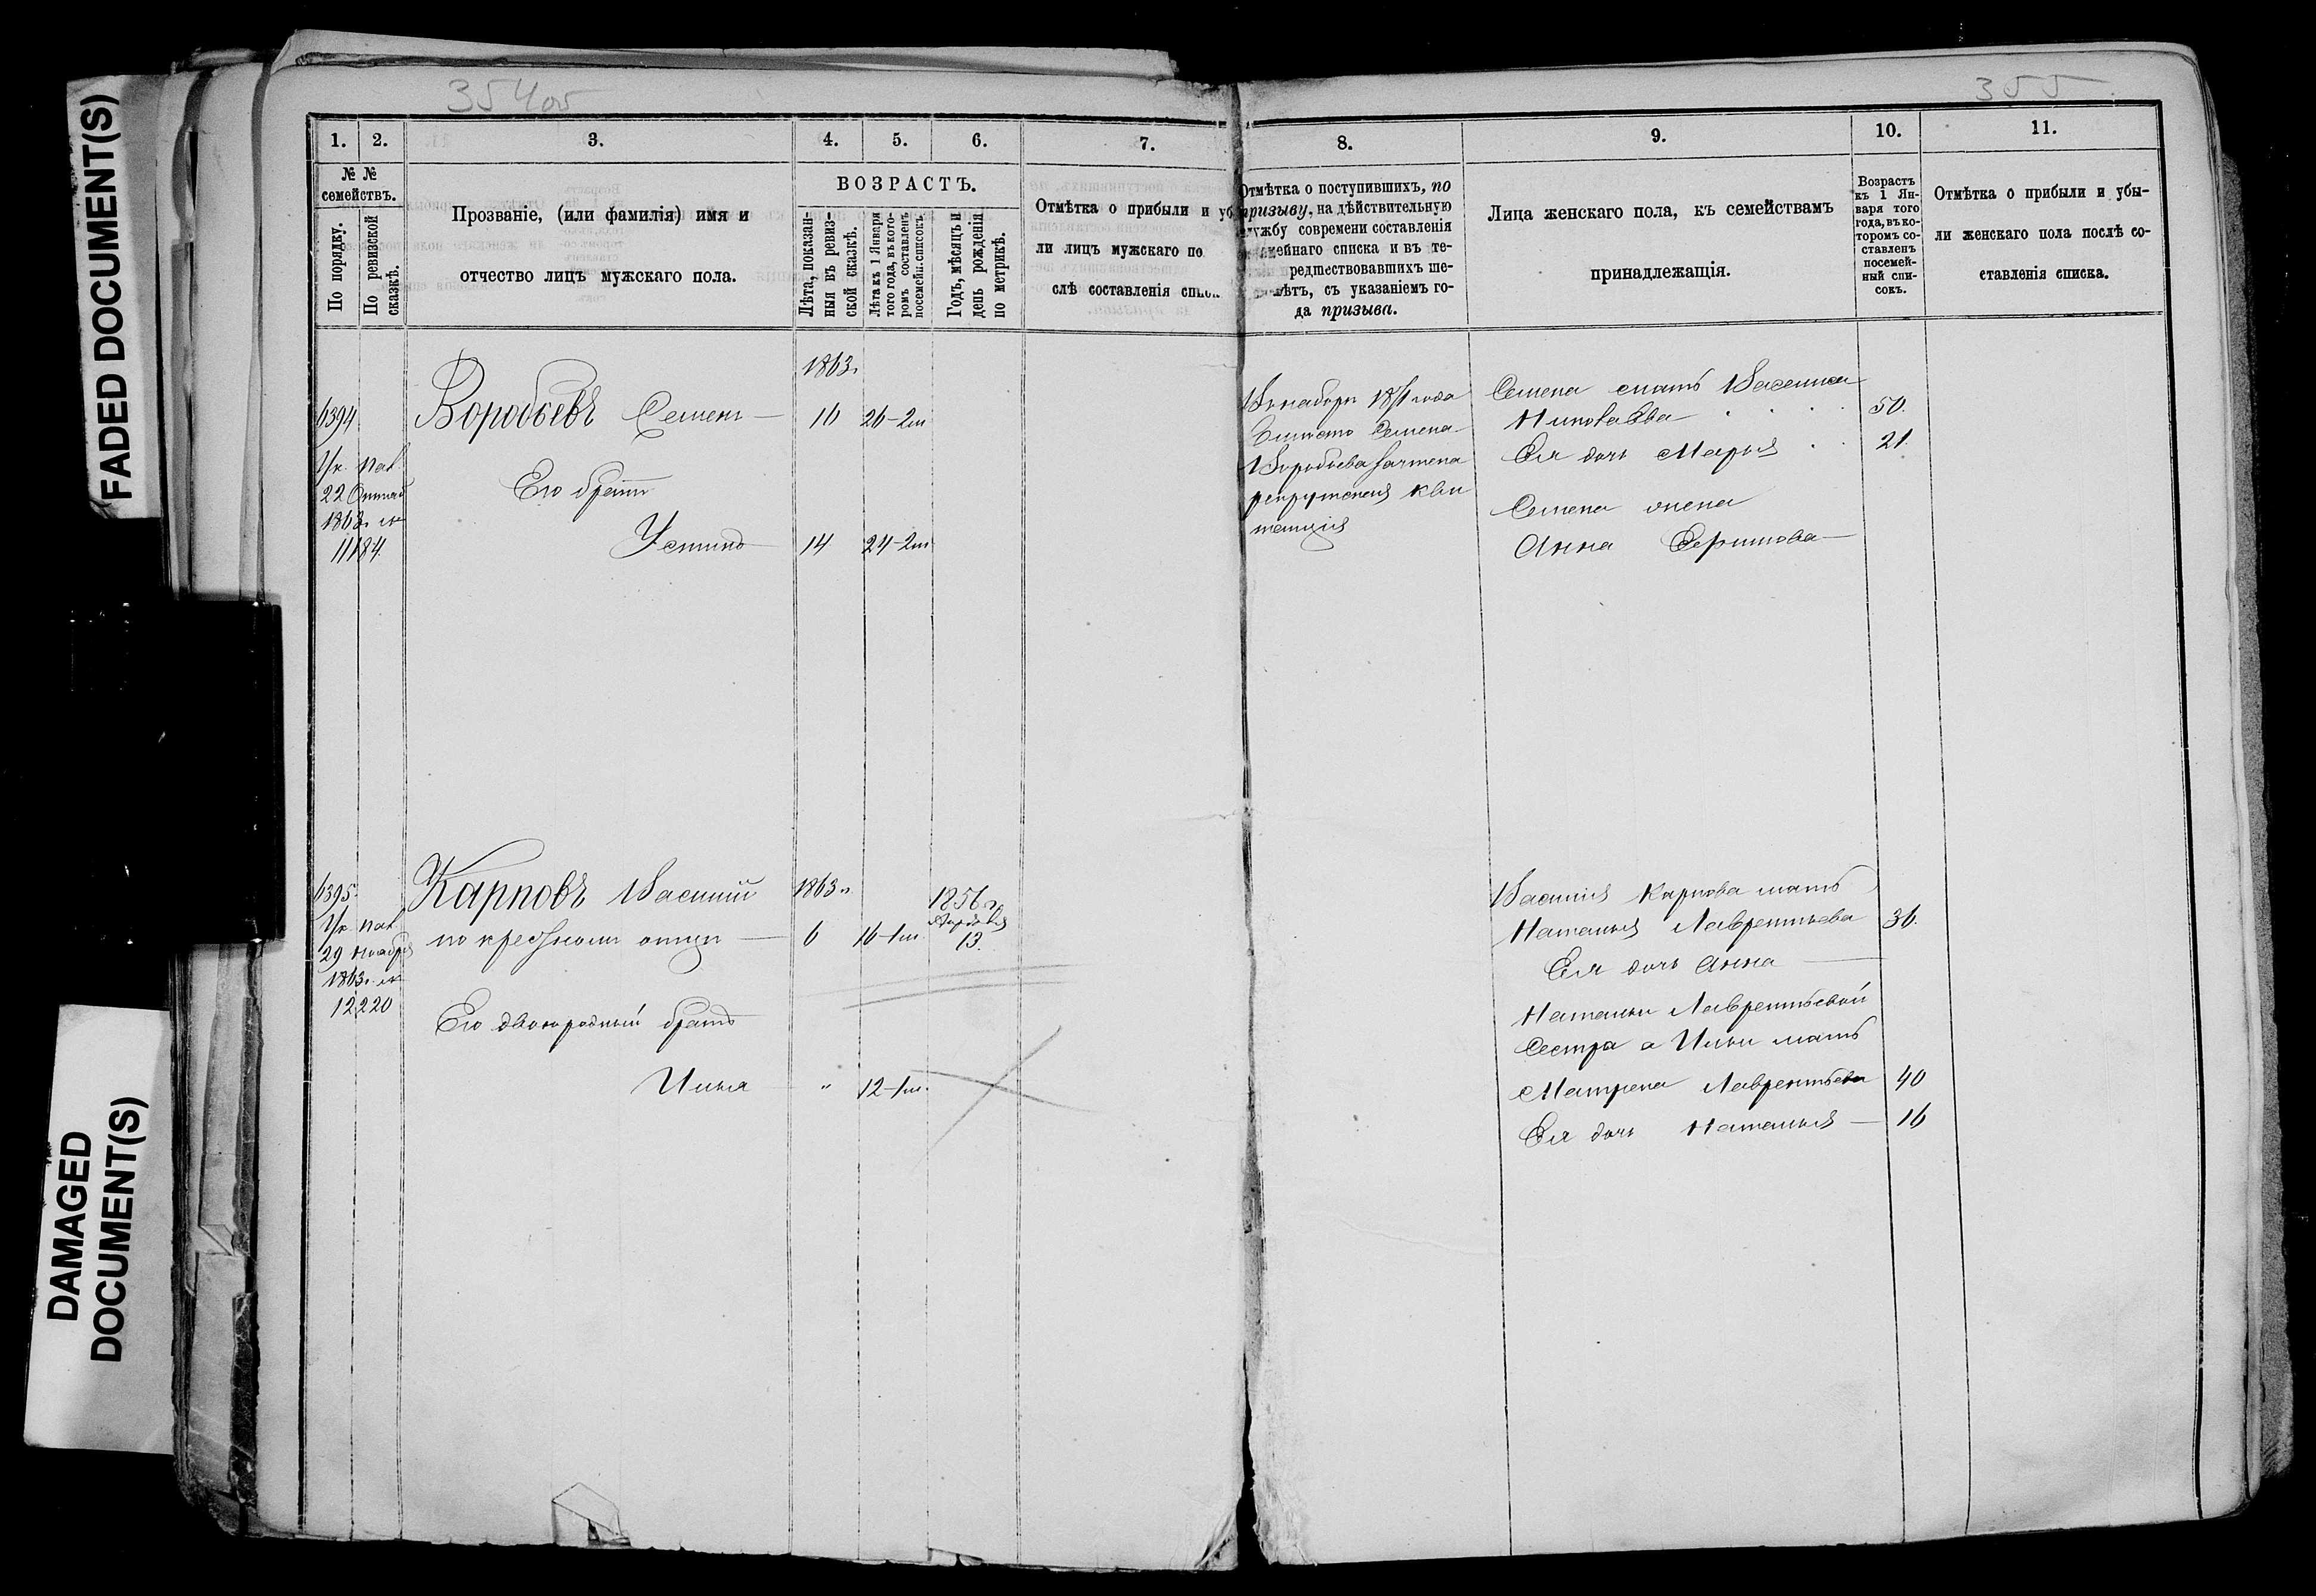 FADED DOCUMENT(S)
DAMAGED
DOCUMENT(S)
354об
355
1. 2. 3. 4. 5. 6. 7. 8. 9. 10. 11.
№ №
семействъ.
По порядку.
По ревизской
сказкѣ.
Прозваніе, (или фамилія) имя и
отчество лицъ мужскаго пола.
ВОЗРАСТЪ.
Лѣта, показан-
ныя въ ревиз-
ской сказкѣ.
Лѣта къ 1 Января
того года, въ кото-
ромъ составленъ
посемейн. списокъ.
Годъ, мѣсяцъ и
день рожденія
по метрикѣ.
Отмѣтка о прибыли и уб
ли лицъ мужскаго по
слѣ составленія списк
Отмѣтка о поступившихъ, по
призыву, на дѣйствительную
службу современи составленія
мейнаго списка и въ те-
редшествовавшихъ ше-
лѣтъ, съ указаніемъ го-
да призыва.
Лица женскаго пола, къ семействамъ
принадлежащія.
Возрастъ
къ 1 Ян-
варя того
года, въ ко-
торомъ со-
ставленъ
посемей-
ный спи-
сокъ.
Отмѣтка о прибыли и убы-
ли женскаго пола послѣ со-
ставленія списка.
1863.
6394 Воробьевъ Семенъ 16 26-2м
22
1863.
11184.
Его братъ
Устинъ 14 24-2м
года
Семена
Воробьева зачтена
рекрутская кви
танція
Семена мать
50.
Ея дочь Марья 21.
Семена жена
Анна
6395. Карповъ Василій 1863 1856 г.
29 Ноября по крестному отцу 6 16-1м 13.
1863.
12220
Его двоюродный братъ
Илья " 12-1м.
Василія Карпова мать
Наталья Лаврентьева 36.
Ея дочь Анна
Натальи Лаврентьевой
Сестра а Ильи мать
Матрена Лаврентьева 40
Ея дочь Наталья 16